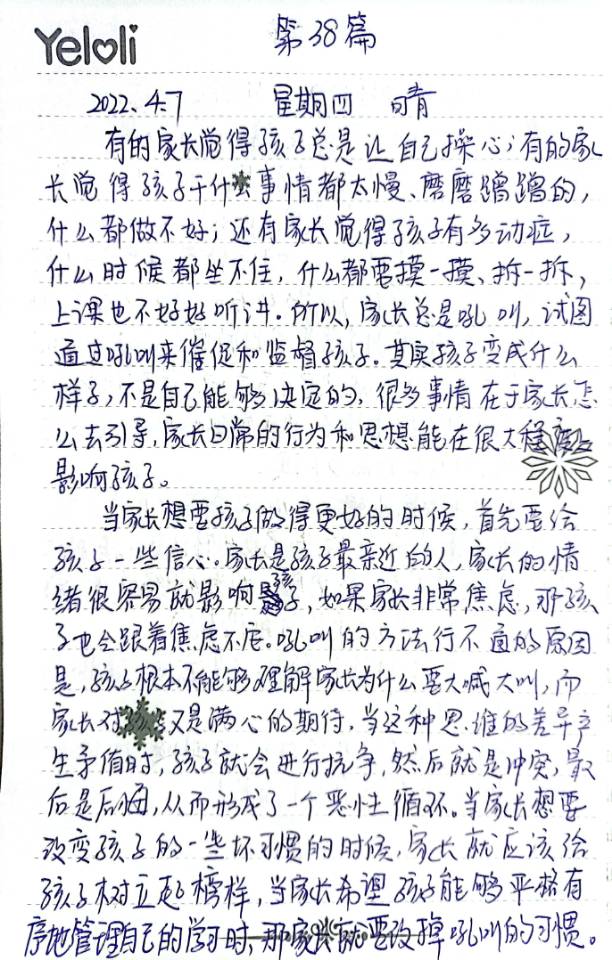 Yeloli
第38篇
2022.4.7 星期四 晴
有的家长觉得孩子总是让自己操心；有的家
长觉得孩子干什么事情都太慢、磨磨蹭蹭的，
什么都做不好；还有家长觉得孩子有多动症，
什么时候都坐不住，什么都要摸一摸、拆一拆，
上课也不好好听讲。所以，家长总是吼叫，试图
通过吼叫来催促和监督孩子。其实孩子变成什么
样子，不是自己能够决定的，很多事情在于家长怎
么去引导，家长日常的行为和思想能在很大程度上
影响孩子。
当家长想要孩子做得更好的时候，首先要给
孩子一些信心。家长是孩子最亲近的人，家长的情
绪很容易就影响孩子，如果家长非常焦虑，那孩
子也会跟着焦虑不安。吼叫的方法行不通的原因
是，孩子根本不能够理解家长为什么要大喊大叫，而
家长对孩子又是满心的期待，当这种思维的差异产
生矛盾时，孩子就会进行抗争，然后就是冲突，最
后是后悔，从而形成了一个恶性循环。当家长想要
改变孩子的一些坏习惯的时候，家长就应该给
孩子树立起榜样，当家长希望孩子能够严格有
序地管理自己的学习时，那家长就要改掉吼叫的习惯。